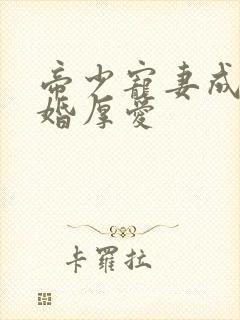 帝少寵妻成
婚厚愛
卡羅拉